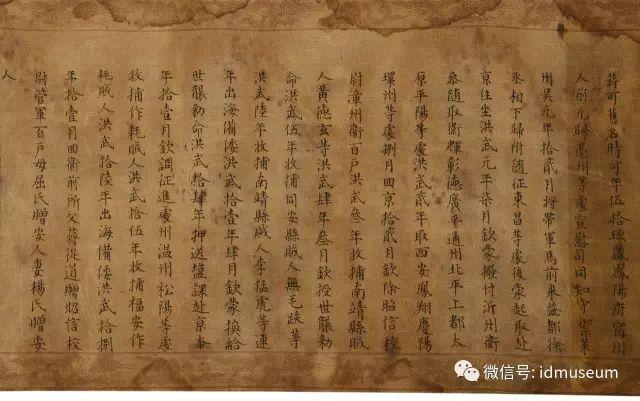 蒋可舊名時可年伍拾玖歲鳳陽府宿州
人前元歸亳州等處宣慰司同知守禦萊
州吴元年拾貳月將帶軍馬前来益都徐
丞相下歸附随征東昌等處後蒙起取赴
京住坐洪武元年柒月欽蒙撥付沂州衛
叅随取衛輝彰德廣平通州北平上都太
原平陽等處洪武貳年取西安鳳翔慶陽
環州等處捌月回京拾貳月欽除昭信校
尉漳州衛百戶洪武叁年收捕南靖縣賊
人黃德玄等洪武肆年叁月欽授世襲勑
命洪武伍年收捕同安縣賊人無毛跌等
洪武陸年收捕南靖縣賊人李猛虎等連
年出海備倭洪武拾壹年肆月欽蒙換給
世襲勑命洪武拾肆年押送塩課赴京本
年拾壹月欽調征進處州温州松陽等處
收捕作耗賊人洪武拾伍年收捕福安作
耗賊人洪武拾陸年出海備倭洪武拾捌
年拾壹月回衛前所父蒋從道贈昭信校
尉管軍百戶母屈氏贈安人妻楊氏贈安
人
微信号: idmuseum